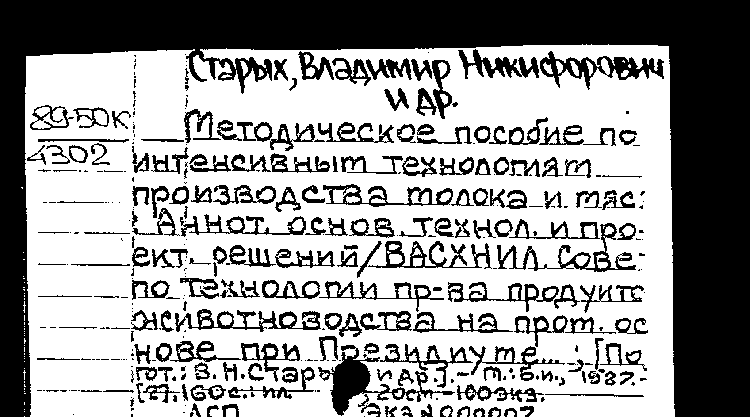 Старых, Владимир Никифорович
и др.
89-50К
4302
Методическое пособие по
интенсивным технологиям
производства молока и мяс:
: Аннот. основ. технол. и про-
ект. решений/ВАСХНИЛ. Сове-
по технологии пр-ва продуктс
животноводства на пром. ос
нове при Президиуме... ; [По
гот.: В. Н. Стары и др.].- М.: Б.и., 1987.-
160с.: ил. 20см.-100экз.
ДСП Экз N 000007